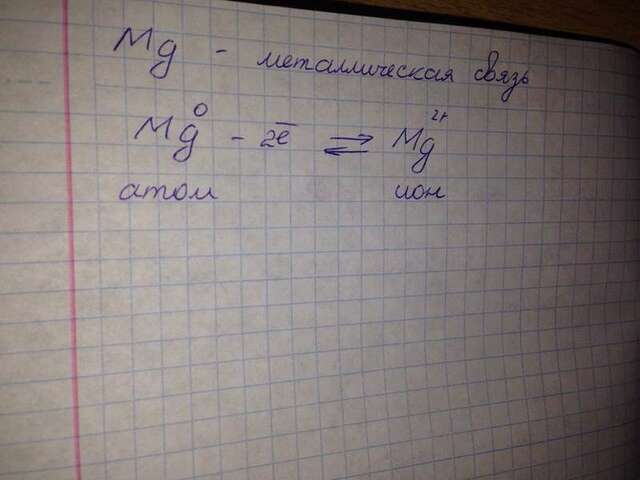 Mg - металлическая связь
Mg⁰ - 2e̅ ⇄ Mg²⁺
атом ион